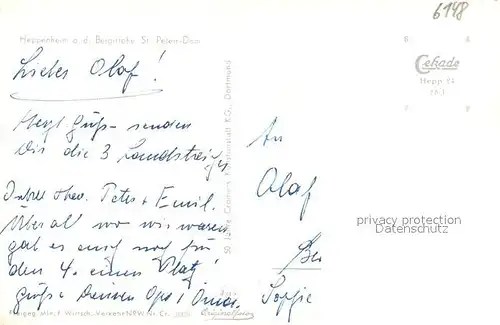 6148
Heppenheim a. d. Bergstraße, St. Peters-Dom
Liebes Olaf!
Cekade
Hepp 24
Herzl Grüße senden
Dir die 3 Landstreicher
50 Jahre Cramers Kunstanstalt KG., Dortmund
An
Olaf
Peter + Emil.
Überall wo wir waren
gab es auch noch für
den 4. einen Platz!
Grüße Deinen Opa + Oma.
Sophie
privacy protection
Datenschutz
Freigeg. Min. f. Wirtsch. u. Verkehr NRW Nr. Cr.